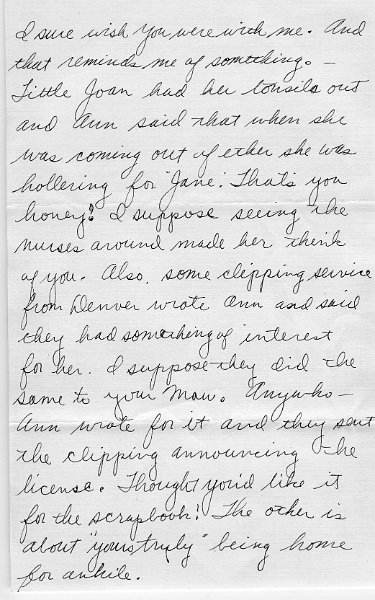 I sure wish you were with me. And
that reminds me of something. –
Little Joan had her tonsils out
and Ann said that when she
was coming out of ether she was
hollering for "Jane". That's you
honey! I suppose seeing the
nurses around made her think
of you. Also, some clipping service
from Denver wrote Ann and said
they had something of interest
for her. I suppose they did the
same to your Maw. Anywho –
Ann wrote for it and they sent
the clipping announcing the
license. Thought you'd like it
for the scrapbook! The other is
about "yours truly" being home
for awhile.